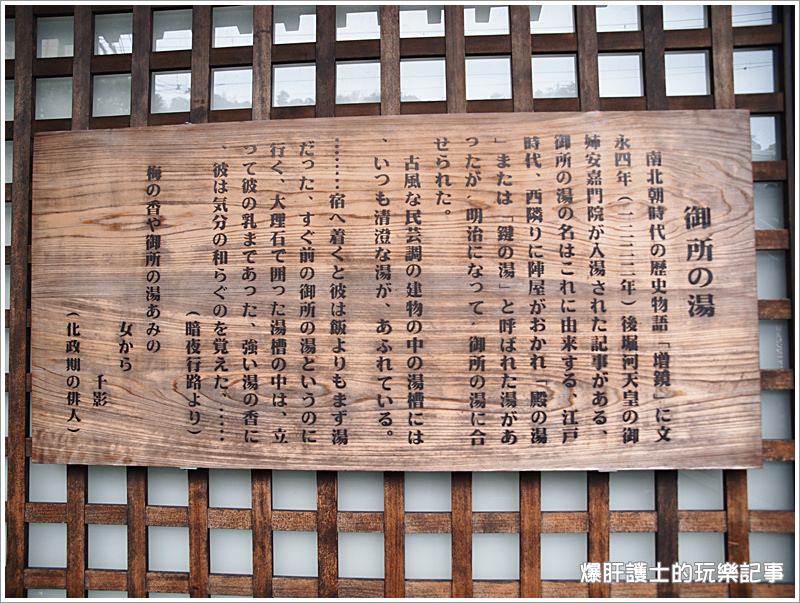 御所の湯
南北朝時代の歴史物語「増鏡」に文
永四年（一二二二年）後堀河天皇の御
姉安嘉門院が入湯された記事がある、
御所の湯の名はこれに由来する、江戸
時代、西隣りに陣屋がおかれ「殿の湯
」または「鍵の湯」と呼ばれた湯があ
ったが、明治になって、御所の湯に合
せられた。
古風な民芸調の建物の中の湯槽には
、いつも清澄な湯が、あふれている。
………宿へ着くと彼は飯よりもまず湯
だった、すぐ前の御所の湯というのに
行く、大理石で囲った湯槽の中は、立
って彼の乳まであった、強い湯の香に
、彼は気分の和らぐのを覚えた、……
（暗夜行路より）
梅の香や御所の湯あみの
女から
千影
（化政期の俳人）
爆肝護士的玩樂記事